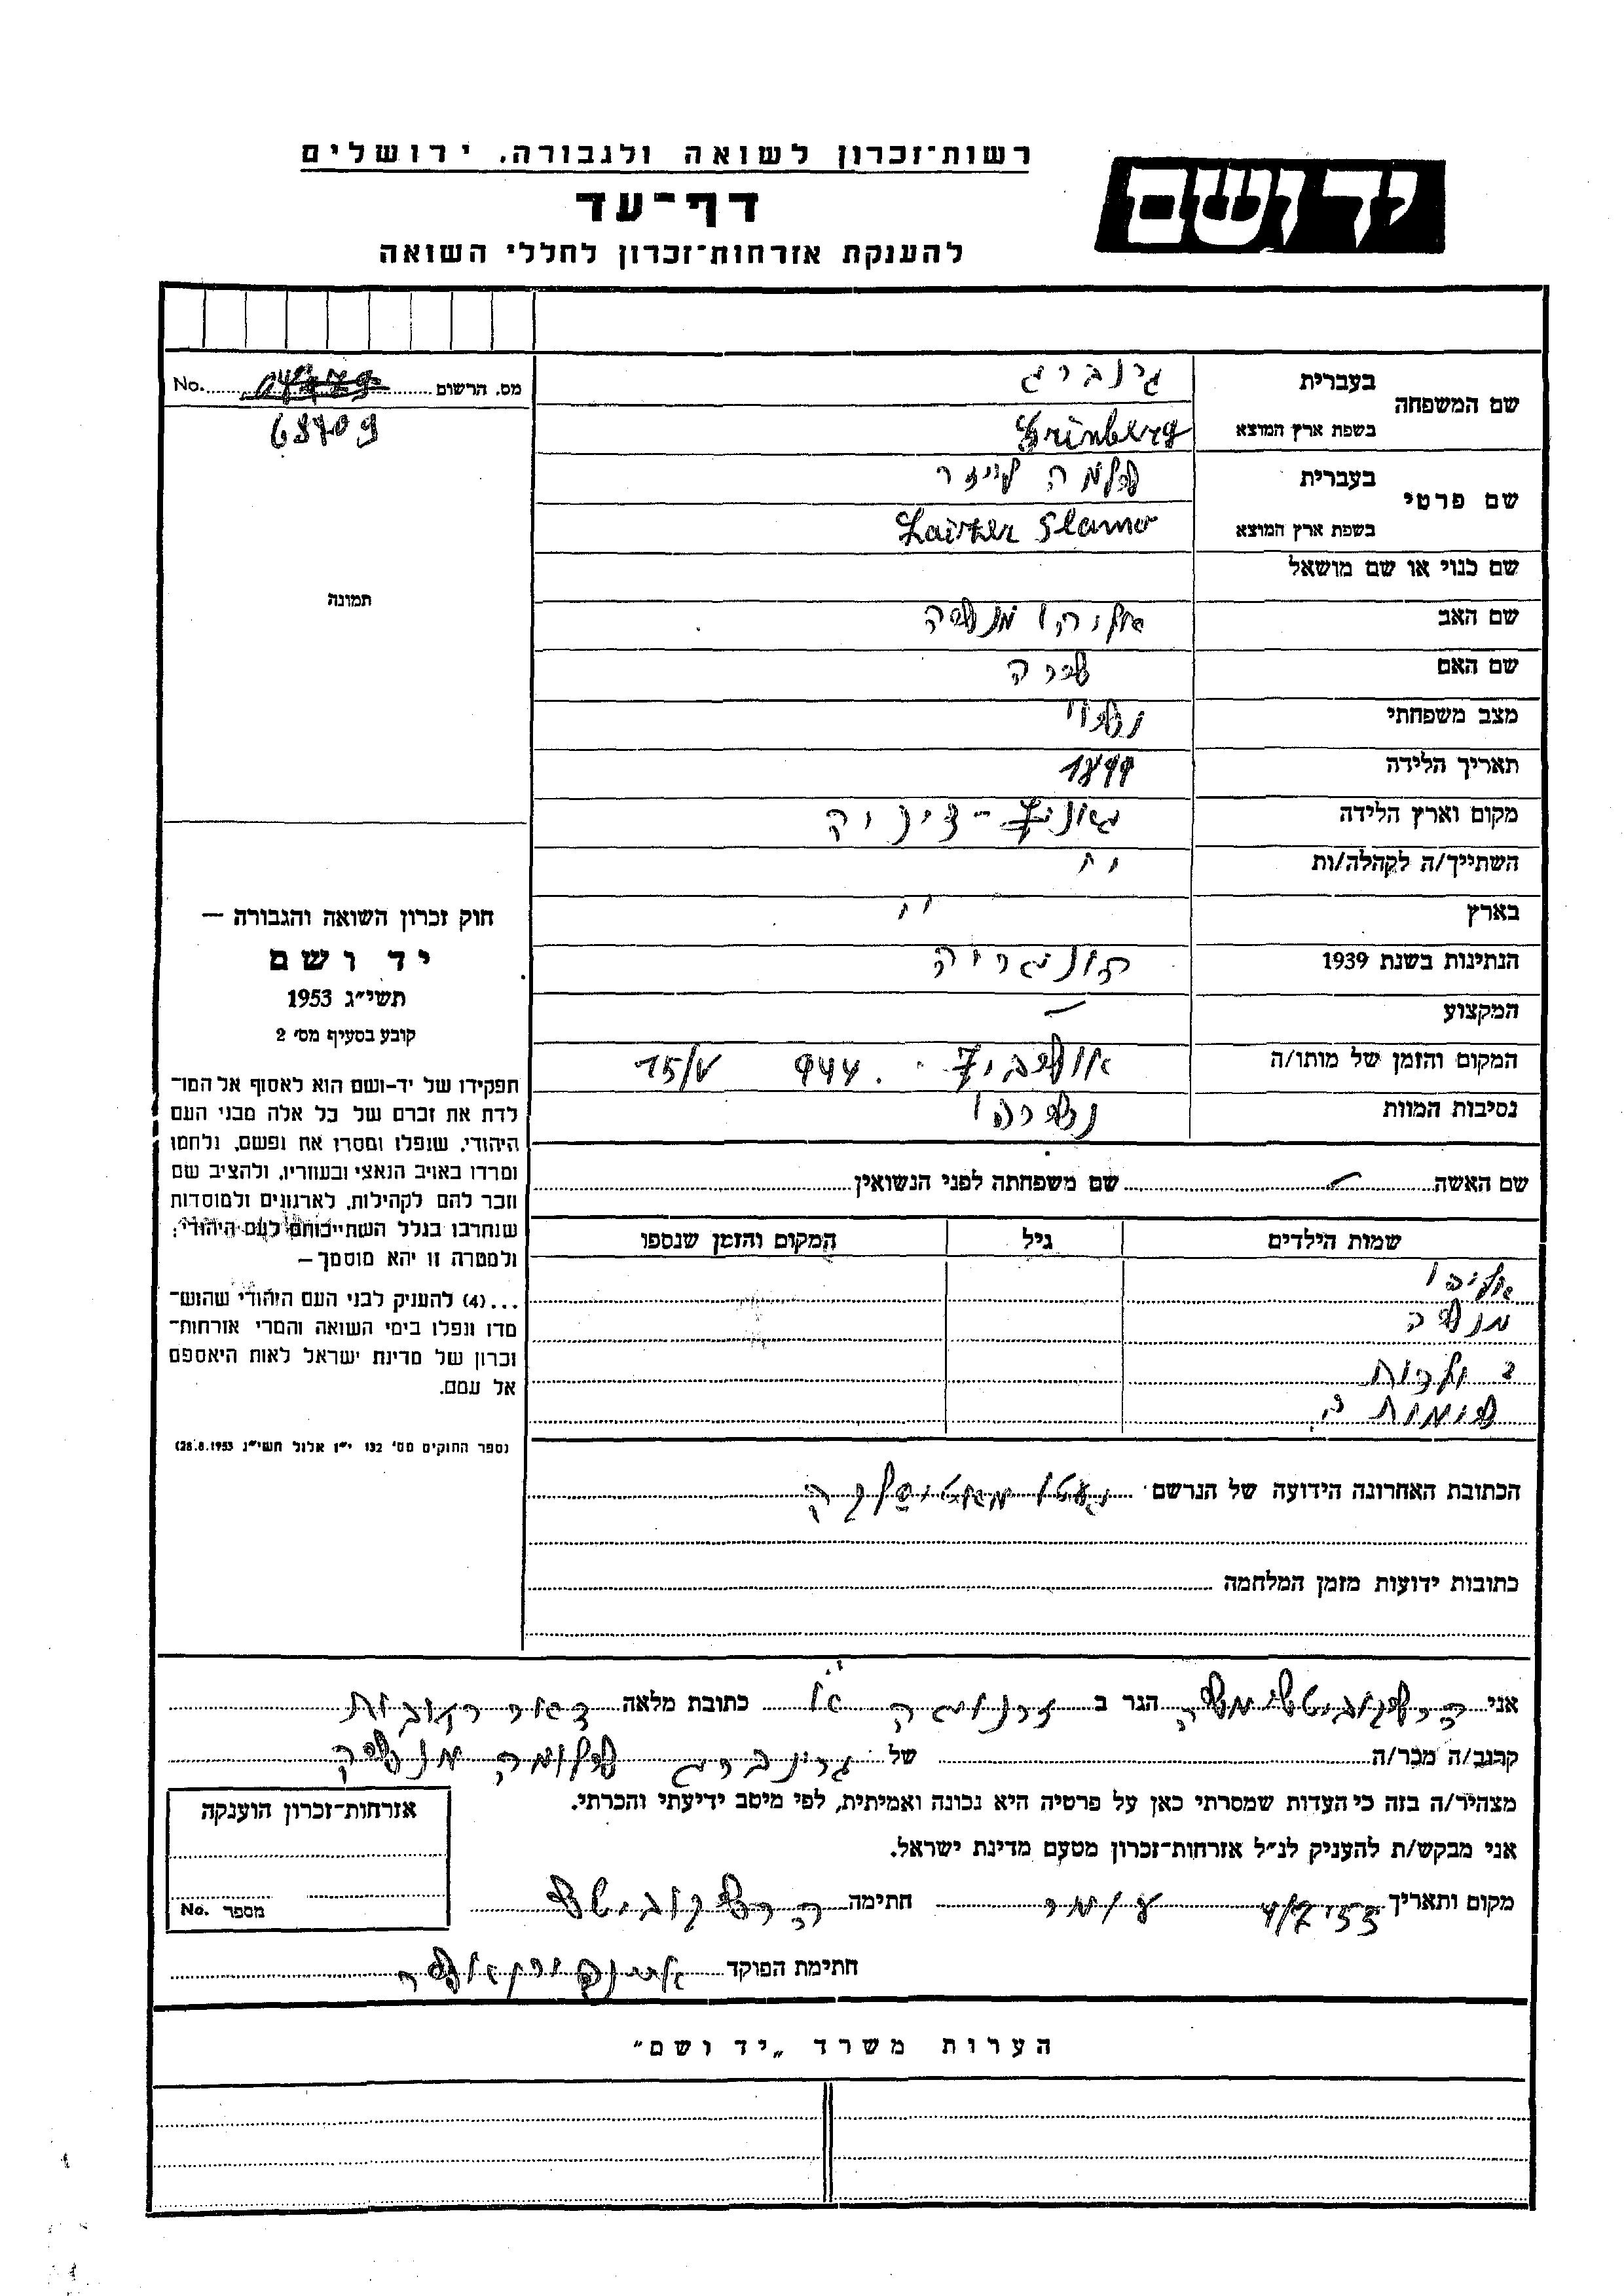 ידושם
רשות־זכרון לשואה ולגבורה, ירושלים
דף־עד
להענקת אזרחות־זכרון לחללי השואה
מס. הרשום No.
68709
תמונה
חוק זכרון השואה והגבורה —
יד ושם
תשי״ג 1953
קובע בסעיף מס׳ 2
תפקידו של יד־ושם הוא לאסוף אל המו־
לדת את זכרם של כל אלה מבני העם
היהודי, שנפלו ומסרו את נפשם, נלחמו
ומרדו באויב הנאצי ובעוזריו, ולהציב שם
וזכר להם לקהילות, לארגונים ולמוסדות
שנחרבו בגלל השתייכותם לעם היהודי;
ולמטרה זו יהא מוסמך—
...(4) להעניק לבני העם היהודי שהוש־
מדו ונפלו בימי השואה והמרי אזרחות־
זכרון של מדינת ישראל לאות היאספם
אל עמם.
(ספר החוקים מס׳ 132 י״ז אלול תשי״ג 28.8.1953)
שם המשפחה בעברית גינברג
בשפת ארץ המוצא Grinberg
שם פרטי בעברית שלמה לייזר
בשפת ארץ המוצא Laizer Slamo
שם כנוי או שם מושאל
שם האב אליהו מנשה
שם האם שרה
מצב משפחתי נשוי
תאריך הלידה 1899
מקום וארץ הלידה
השתייך/ה לקהלה/ות ״
בארץ ״
הנתינות בשנת 1939 הונגריה
המקצוע —
המקום והזמן של מותו/ה אושביץ 944. 15/V
נסיבות המוות נשרפו
שם האשה — שם משפחתה לפני הנשואין
שמות הילדים גיל המקום והזמן שנספו
אליהו
מנשה
ילדות
הכתובת האחרונה הידועה של הנרשם
כתובות ידועות מזמן המלחמה
אני הרשקוביטש משה הגר ב זרנוגה כתובת מלאה דאר רחובות
קרוב/ה מכר/ה של גרינברג שלומה מנשה
מצהיר/ה בזה כי העדות שמסרתי כאן על פרטיה היא נכונה ואמיתית, לפי מיטב ידיעתי והכרתי.
אני מבקש/ת להעניק לנ״ל אזרחות־זכרון מטעם מדינת ישראל.
מקום ותאריך חתימה הרשקוביטש
חתימת הפוקד
אזרחות־זכרון הוענקה
מספר No.
הערות משרד „יד ושם״